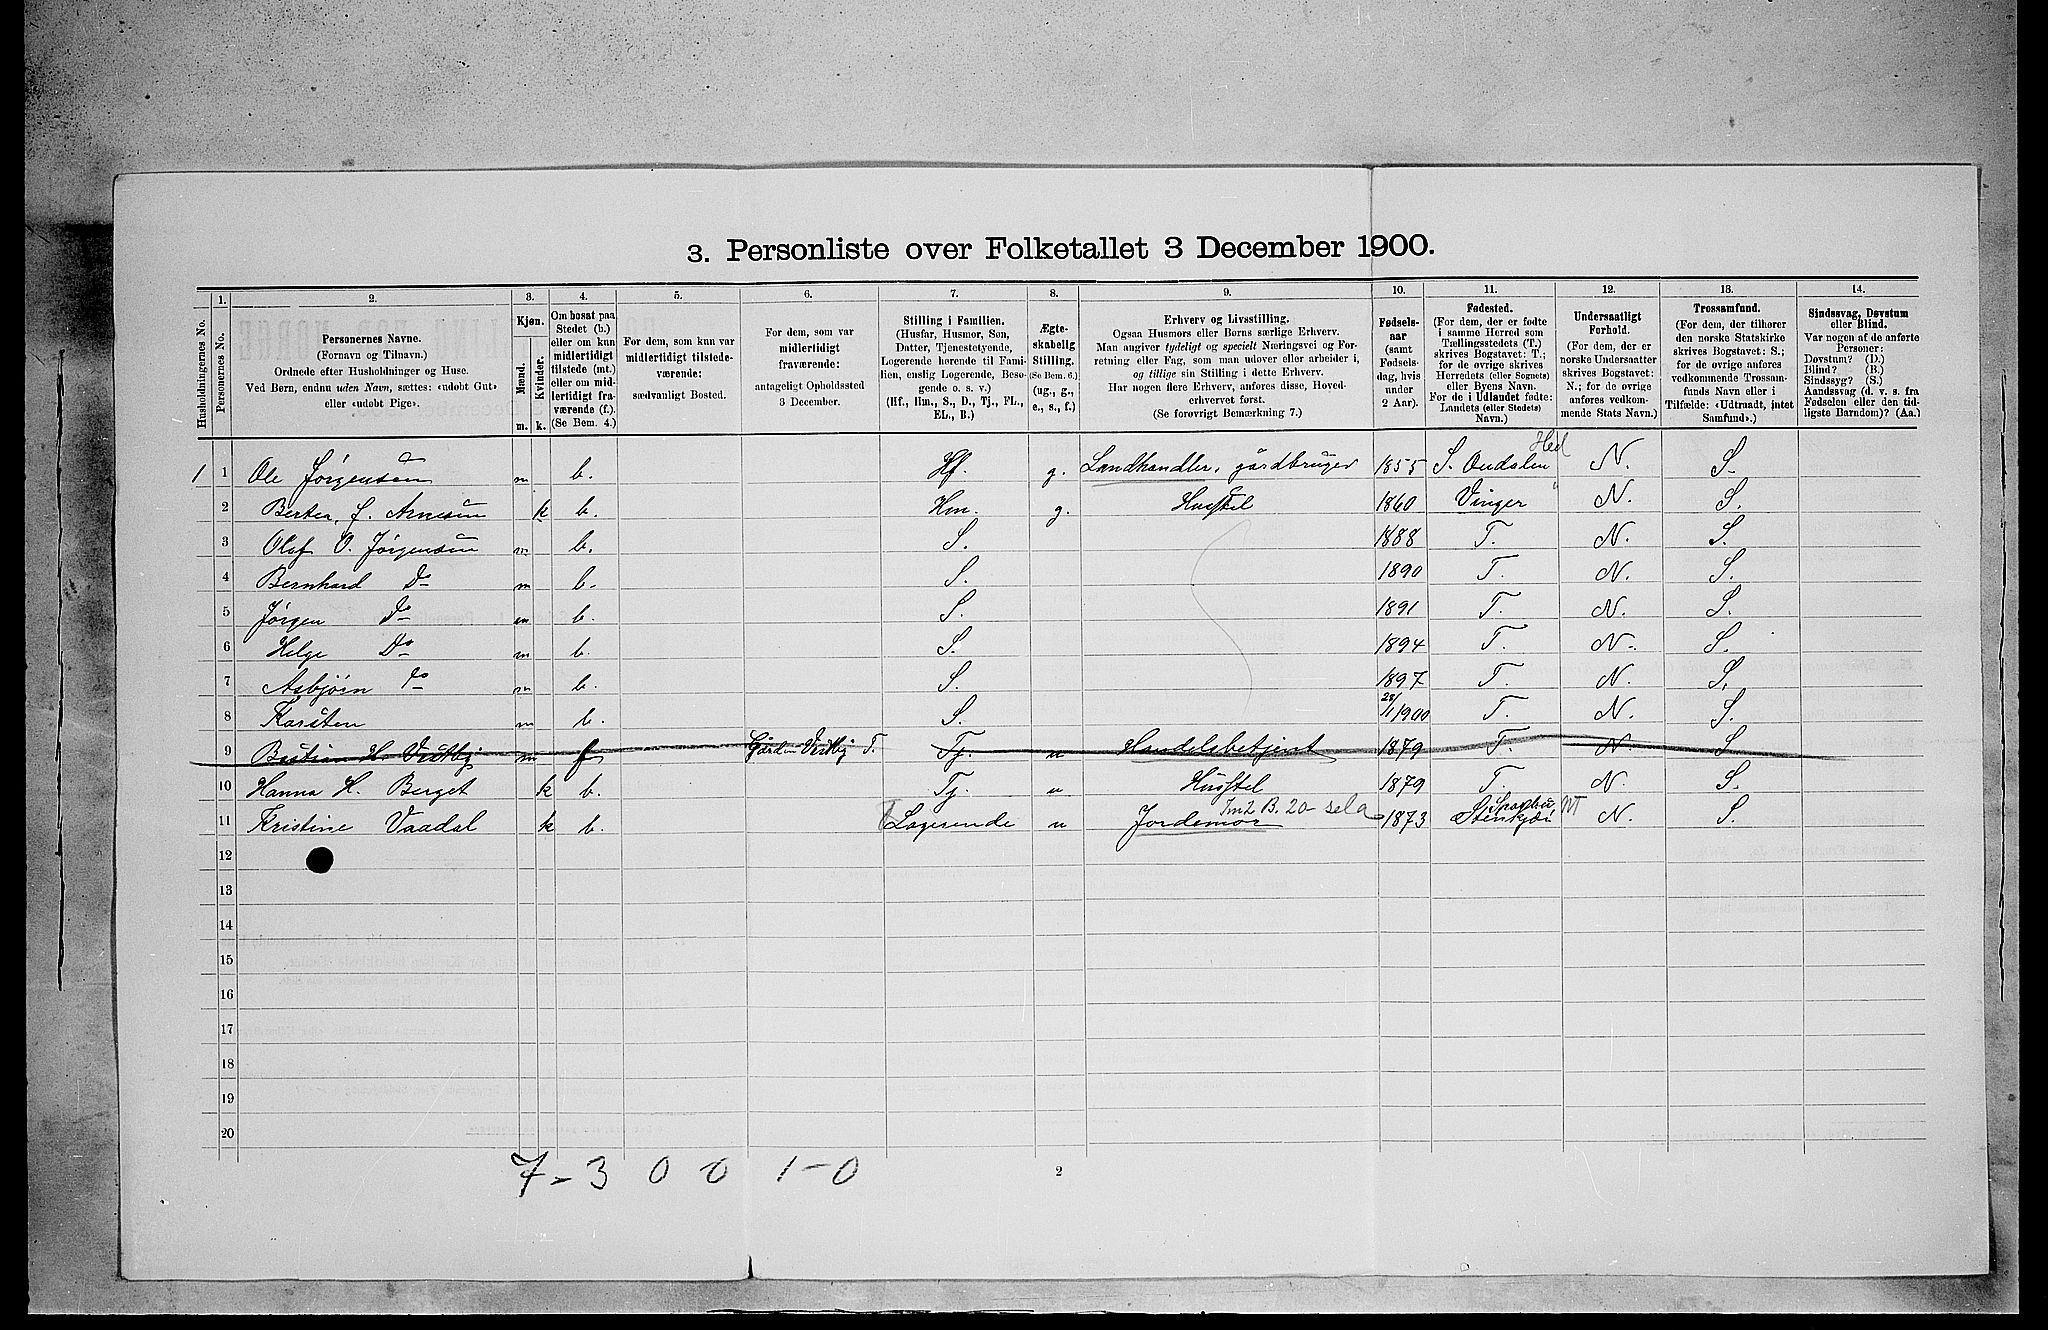 3. Personliste over Folketallet 3 December 1900.
1. 2. 3. 4. 5. 6. 7. 8. 9. 10. 11. 12. 13. 14.
Husholdningernes No.
Personernes No.
Personernes Navne.
(Fornavn og Tilnavn.)
Ordnede efter Husholdninger og Huse.
Ved Børn, endnu uden Navn, sættes: «udøbt Gut»
eller «udøbt Pige».
Kjøn.
Mænd. Kvinder.
m. k.
Om bosat paa
Stedet (b.)
eller om kun
midlertidigt
tilstede (mt.)
eller om mid-
lertidigt fra-
værende (f.)
(Se Bem. 4.)
For dem, som kun var
midlertidigt tilstede-
værende:
sædvanligt Bosted.
For dem, som var
midlertidigt
fraværende:
antageligt Opholdssted
3 December.
Stilling i Familien.
(Husfar, Husmor, Søn,
Datter, Tjenestetyende,
Logerende hørende til Fami-
lien, enslig Logerende, Besø-
gende o. s. v.)
(Hf., Hm., S., D., Tj., FL.,
EL., B.)
Ægte-
skabelig
Stilling.
(Se Bem. 6.)
(ug., g.,
e., s., f.)
Erhverv og Livsstilling.
Ogsaa Husmors eller Børns særlige Erhverv.
Man angiver tydeligt og specielt Næringsvei og For-
retning eller Fag, som man udøver eller arbeider i,
og tillige sin Stilling i dette Erhverv.
Har nogen flere Erhverv, anføres disse, Hoved-
erhvervet først.
(Se forøvrigt Bemærkning 7.)
Fødsels-
aar
(samt
Fødsels-
dag, hvis
under
2 Aar).
Fødested.
(For dem, der er fødte
i samme Herred som
Tællingsstedets (T.)
skrives Bogstavet: T.;
for de øvrige skrives
Herredets (eller Sognets)
eller Byens Navn.
For de i Udlandet fødte:
Landets (eller Stedets)
Navn.)
Undersaatligt
Forhold.
(For dem, der er
norske Undersaatter
skrives Bogstavet:
N.; for de øvrige
anføres vedkom-
mende Stats Navn.)
Trossamfund.
(For dem, der tilhører
den norske Statskirke
skrives Bogstavet: S.;
for de øvrige anføres
vedkommende Trossam-
funds Navn eller i
Tilfælde: «Udtraadt, intet
Samfund».)
Sindssvag, Døvstum
eller Blind.
Var nogen af de anførte
Personer:
Døvstum? (D.)
Blind? (B.)
Sindssyg? (S.)
Aandssvag (d. v. s. fra
Fødselen eller den tid-
ligste Barndom)? (Aa.)
1 1 Ole Jørgensen m b. Hf. g. Landhandler, gårdbruger 1855 S. Oudalen Hed N. S.
2 Bertea, f. Arnesen k b. Hm. g. Husstel 1860 Vinger " N. S.
3 Olaf O. Jørgensen m b. S. 1888 T. N. S.
4 Bernhard Do m b. S. 1890 T. N. S.
5 Jørgen Do m b. S. 1891 T. N. S.
6 Helge Do m b. S. 1894 T. N. S.
7 Asbjörn Do m b. S. 1897 T. N. S.
8 Karsten m b. S. 28/11 1900 T. N. S.
9 H. Vestby m f Gården Vestby T. Tj. u Handelsbetjent 1879 T. N. S.
10 Hanna H. Berget k b. Tj. u Husstel 1879 T. N. S.
11 Kristine Vaadal k b. Logerende u Jordemor B. 20- 1873 Stenkjær NT N. S.
12
13
14
15
16
17
18
19
20
7-3 0 0 1-0
2